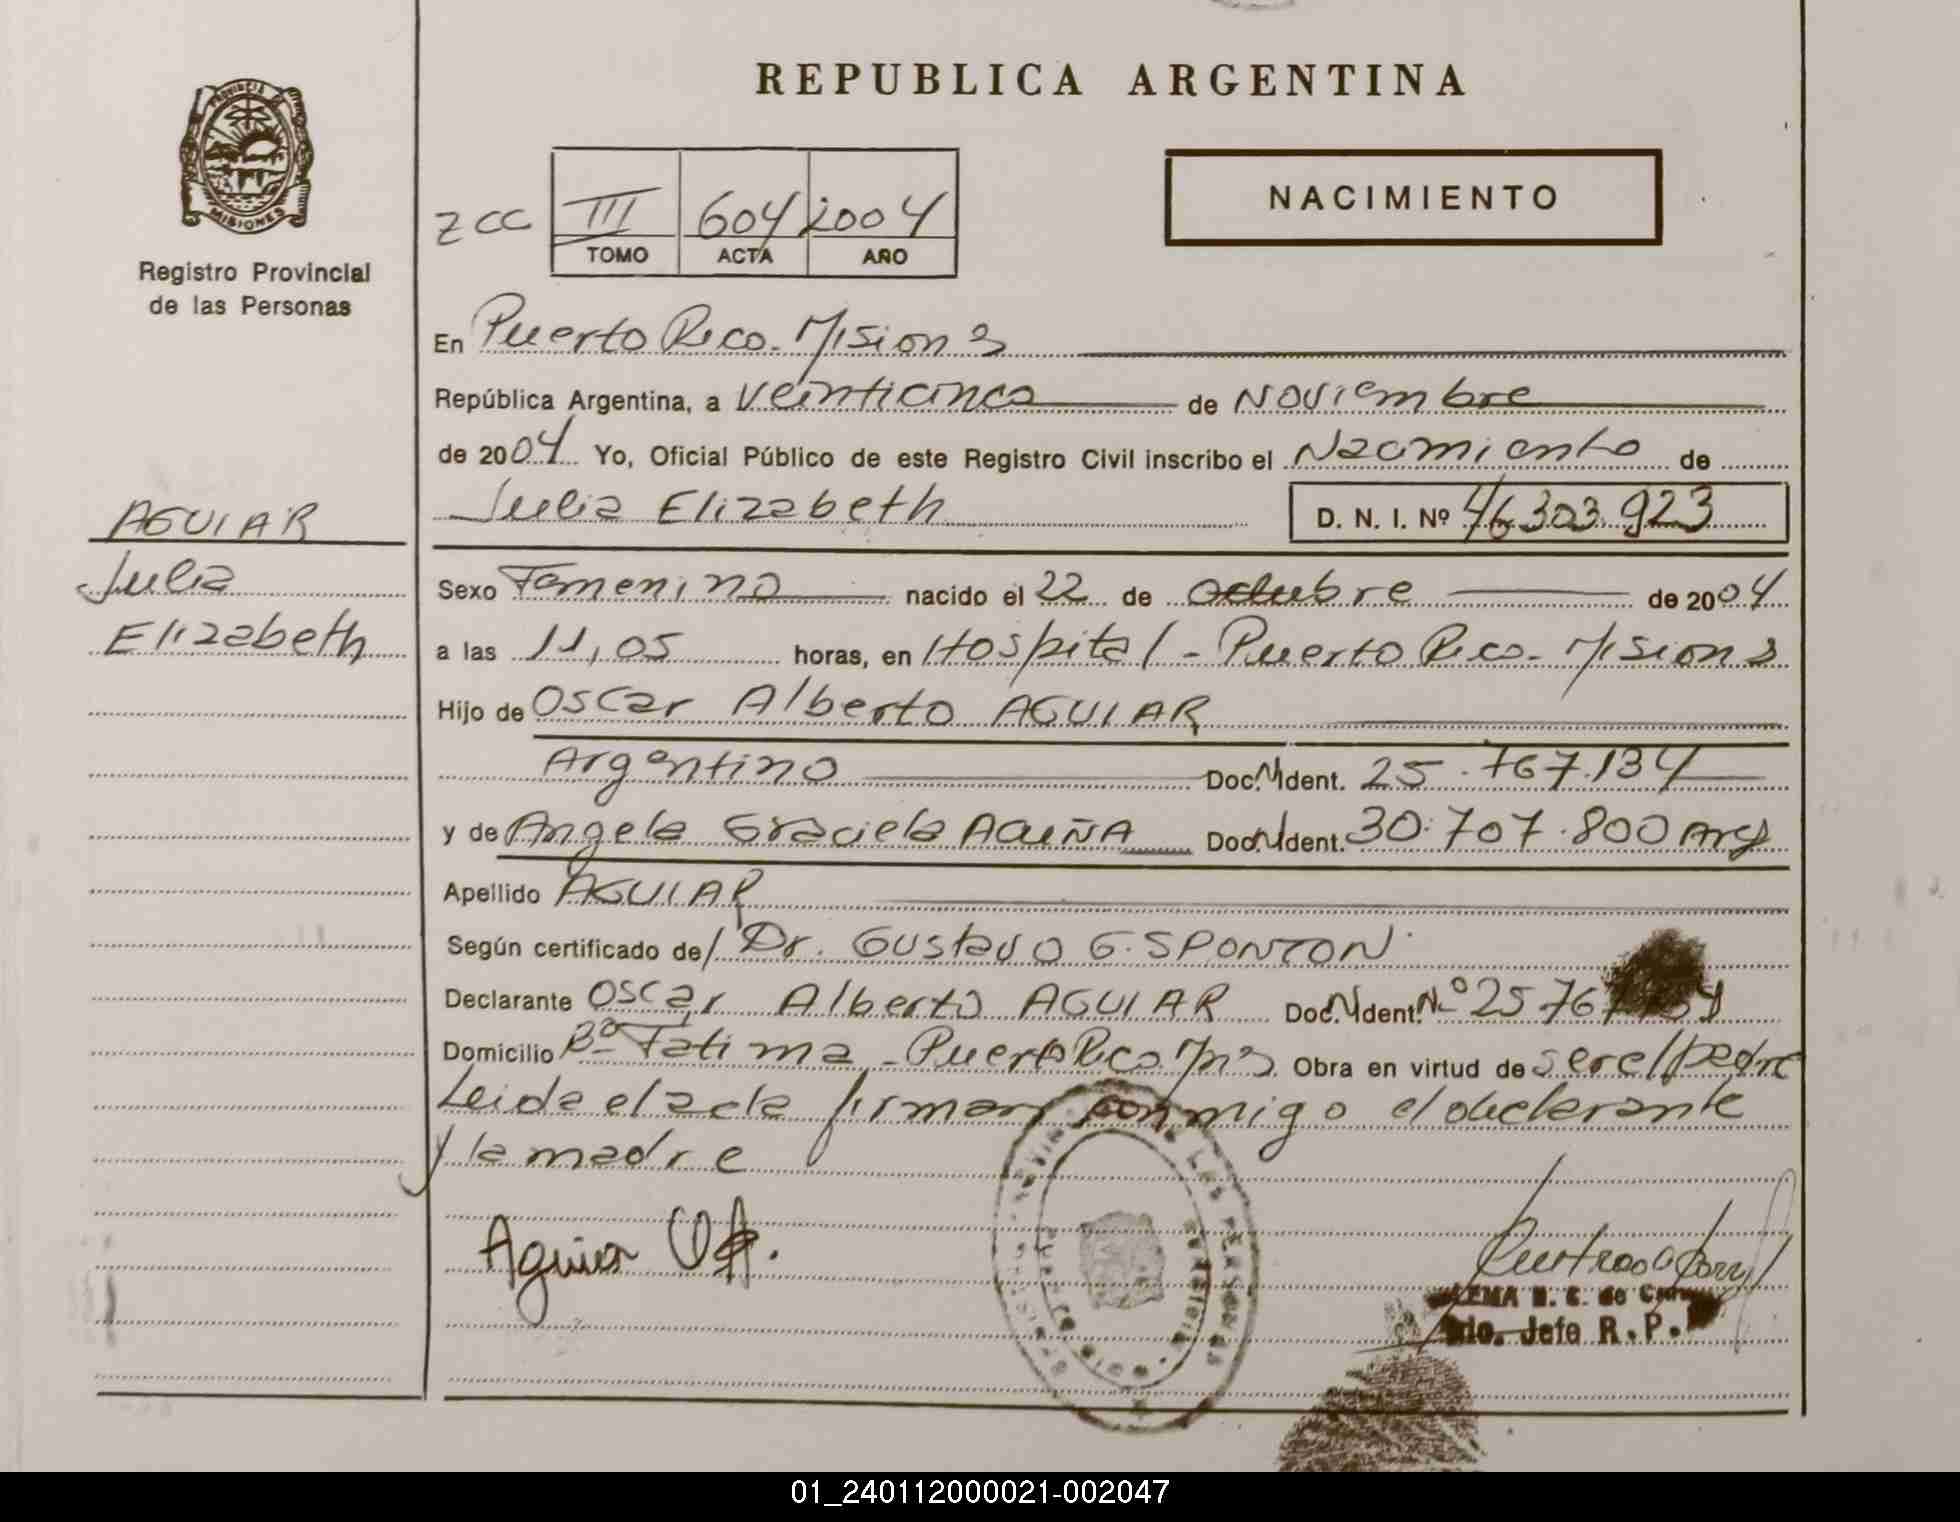 REPUBLICA ARGENTINA
PROVINCIA DE
MISIONES
Registro Provincial
de las Personas
NACIMIENTO
zcc III 604 2004
TOMO ACTA AÑO
En Puerto Rico - Misiones
República Argentina, a veinticinco de Noviembre
de 2004 Yo, Oficial Público de este Registro Civil inscribo el Nacimiento de
Julia Elizabeth D. N. I. Nº 46303.923
AGUIAR
Julia
Elizabeth
Sexo Femenino nacido el 22 de octubre de 2004
a las 11,05 horas, en Hospital - Puerto Rico - Misiones
Hijo de Oscar Alberto AGUIAR
Argentino Doc. N Ident. 25.767.134
y de Angela Graciela ACUÑA Doc. N Ident. 30.707.800 Arg
Apellido AGUIAR
Según certificado de/ Dr. Gustavo G. SPONTON
Declarante Oscar Alberto AGUIAR Doc. N Ident. Nº 25767134
Domicilio Bº Fatima - Puerto Rico Mnes Obra en virtud de ser el padre
Leida el acta firman conmigo el declarante
y la madre
Aguiar O A.
DE LAS PERSONAS
PUERTO RICO
de
Jefe R.P.
01_240112000021-002047